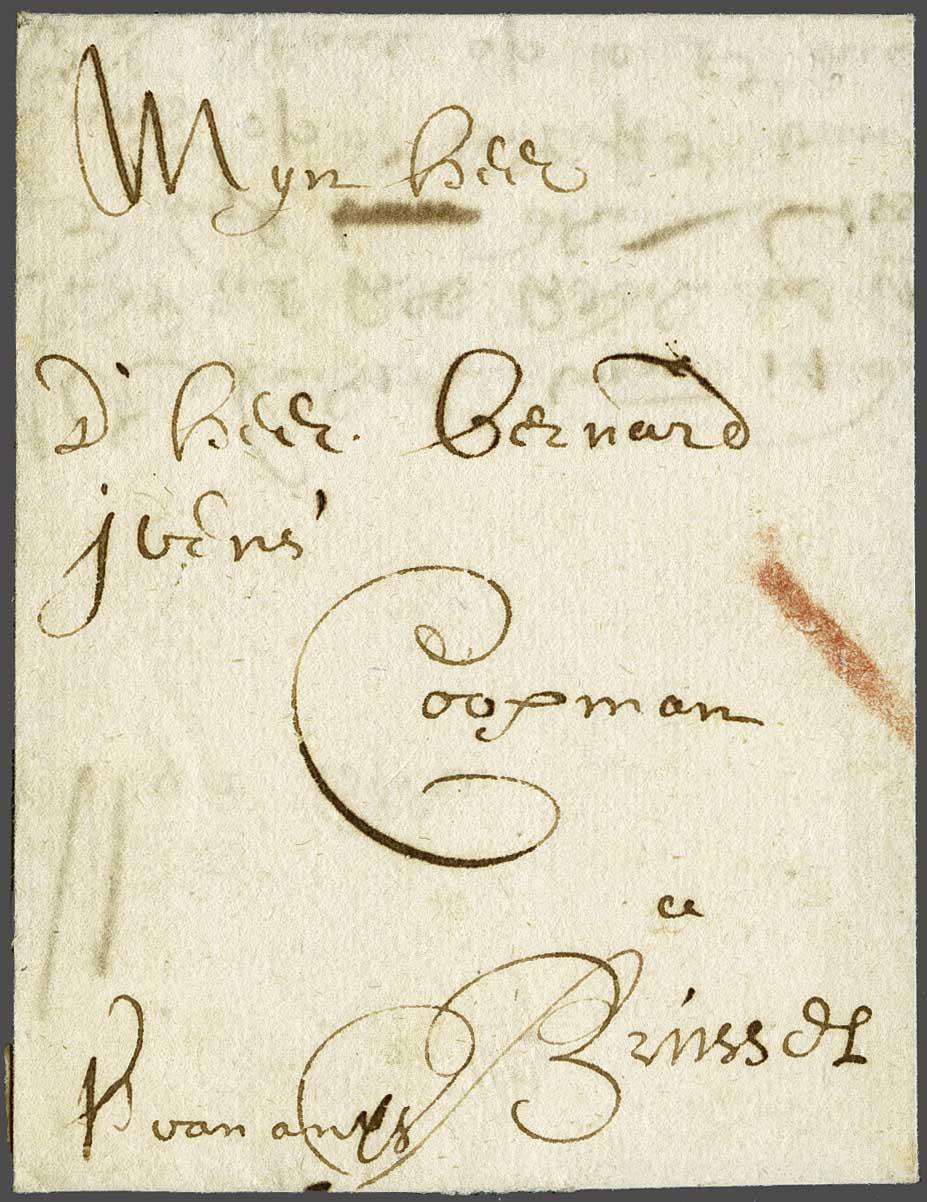 Myn heer
d' heer. bernard
jvens
Coopman
ce
Brussel
P van